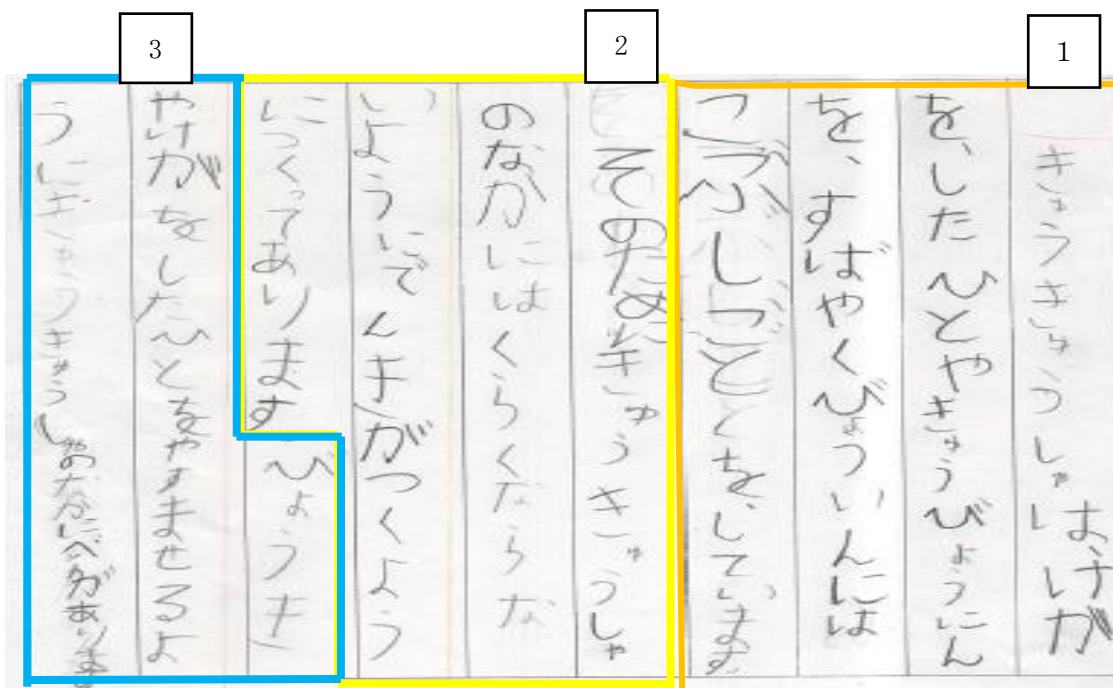 1
2
3
きゅうきゅうしゃは、けが
を、したひとやきゅうびょうにん
を、すばやくびょういんには
こぶしごとをしています
そのためにきゅうきゅうしゃ
のなかにはくらくならな
いようにでんきがつくよう
につくってあります びょうき
やけがをしたひとをやすませるよ
うにきゅうきゅうしゃのなかにべっがあります